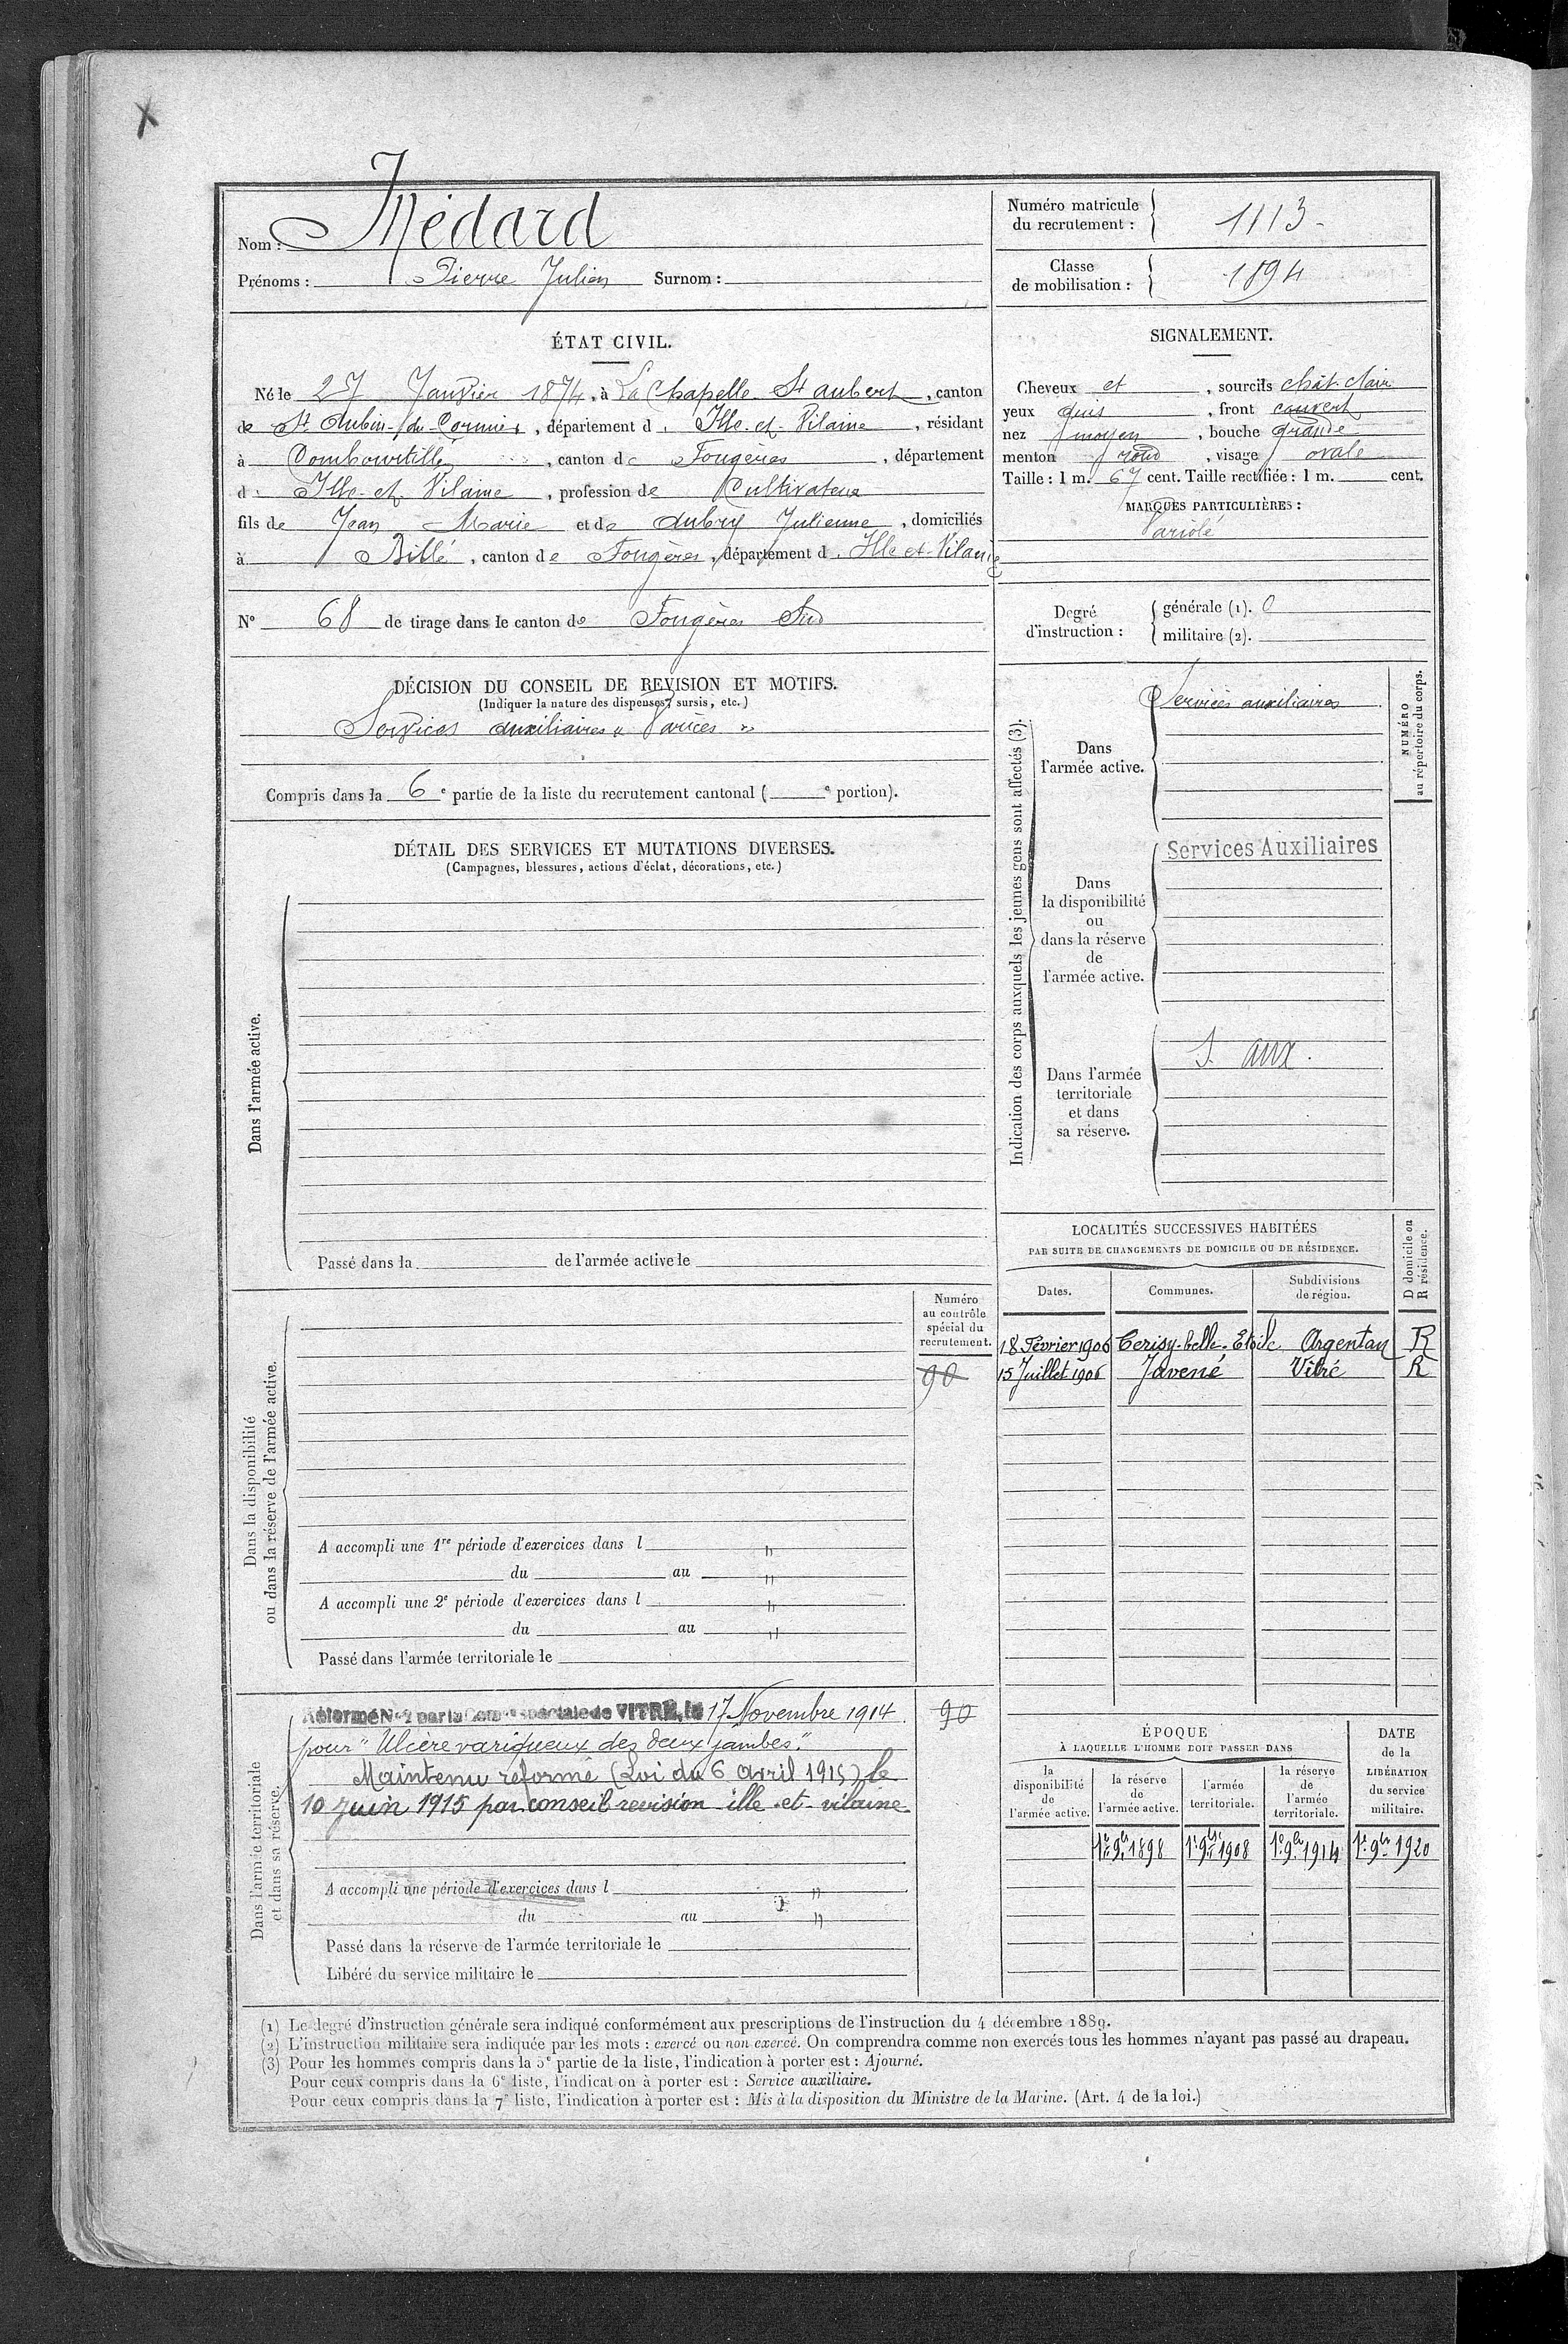 X
Nom : Médard
Prénoms : Pierre Julien Surnom :
Numéro matricule
du recrutement : 1113 -
Classe
de mobilisation : 1894
ÉTAT CIVIL.
Né le 27 Janvier 1874, à La Chapelle St aubert, canton
de St Aubin-du-Cormier, département d Ille-et-Vilaine, résidant
à Combourtillé, canton de Fougères, département
d Ille-et-Vilaine, profession de Cultivateur
fils de Jean Marie et de Aubry Julienne, domiciliés
à Billé, canton de Fougères, département d Ille-et-Vilaine
N° 68 de tirage dans le canton de Fougères Sud
SIGNALEMENT.
Cheveux et , sourcils chât-clair
yeux gris , front couvert
nez moyen , bouche grande
menton rond , visage ovale
Taille : 1 m. 67 cent. Taille rectifiée : 1 m. cent.
MARQUES PARTICULIÈRES :
Variolé
Degré
d'instruction :
générale (1). 0
militaire (2).
DÉCISION DU CONSEIL DE REVISION ET MOTIFS.
(Indiquer la nature des dispenses, sursis, etc.)
Services auxiliaires « Varices »
Compris dans la 6e partie de la liste du recrutement cantonal ( e portion).
DÉTAIL DES SERVICES ET MUTATIONS DIVERSES.
(Campagnes, blessures, actions d'éclat, décorations, etc.)
Dans l'armée active.
Passé dans la de l'armée active le
Indication des corps auxquels les jeunes gens sont affectés (3).
Dans
l'armée active.
Services auxiliaires
NUMÉRO
au répertoire du corps.
Dans
la disponibilité
ou
dans la réserve
de
l'armée active.
Services Auxiliaires
Dans l'armée
territoriale
et dans
sa réserve.
S. aux.
LOCALITÉS SUCCESSIVES HABITÉES
PAR SUITE DE CHANGEMENTS DE DOMICILE OU DE RÉSIDENCE.
D domicile ou
R résidence.
Dates. Communes. Subdivisions
de région.
18 Février 1906 Cerisy-belle-Etoile Argentan R
15 Juillet 1906 Javené Vitré R
Dans la disponibilité
ou dans la réserve de l'armée active.
Numéro
au contrôle
spécial du
recrutement.
90
A accompli une 1re période d'exercices dans l "
du au "
A accompli une 2e période d'exercices dans l "
du au "
Passé dans l'armée territoriale le
Dans l'armée territoriale
et dans sa réserve.
Réformé N° 2 par la Comon spéciale de VITRÉ, le 17 Novembre 1914
pour "Ulcère variqueux des deux jambes."
Maintenu réformé (Loi du 6 avril 1915) le
10 Juin 1915 par conseil revision ille-et-vilaine.
90
A accompli une période d'exercices dans l "
du au "
Passé dans la réserve de l'armée territoriale le
Libéré du service militaire le
ÉPOQUE
À LAQUELLE L'HOMME DOIT PASSER DANS
DATE
de la
LIBÉRATION
du service
militaire.
la
disponibilité
de
l'armée active.
la réserve
de
l'armée active.
l'armée
territoriale.
la réserve
de
l'armée
territoriale.
1er 9bre 1898 1er 9bre 1908 1er 9bre 1914 1er 9bre 1920
(1) Le degré d'instruction générale sera indiqué conformément aux prescriptions de l'instruction du 4 décembre 1889.
(2) L'instruction militaire sera indiquée par les mots : exercé ou non exercé. On comprendra comme non exercés tous les hommes n'ayant pas passé au drapeau.
(3) Pour les hommes compris dans la 5e partie de la liste, l'indication à porter est : Ajourné.
Pour ceux compris dans la 6e liste, l'indication à porter est : Service auxiliaire.
Pour ceux compris dans la 7e liste, l'indication à porter est : Mis à la disposition du Ministre de la Marine. (Art. 4 de la loi.)